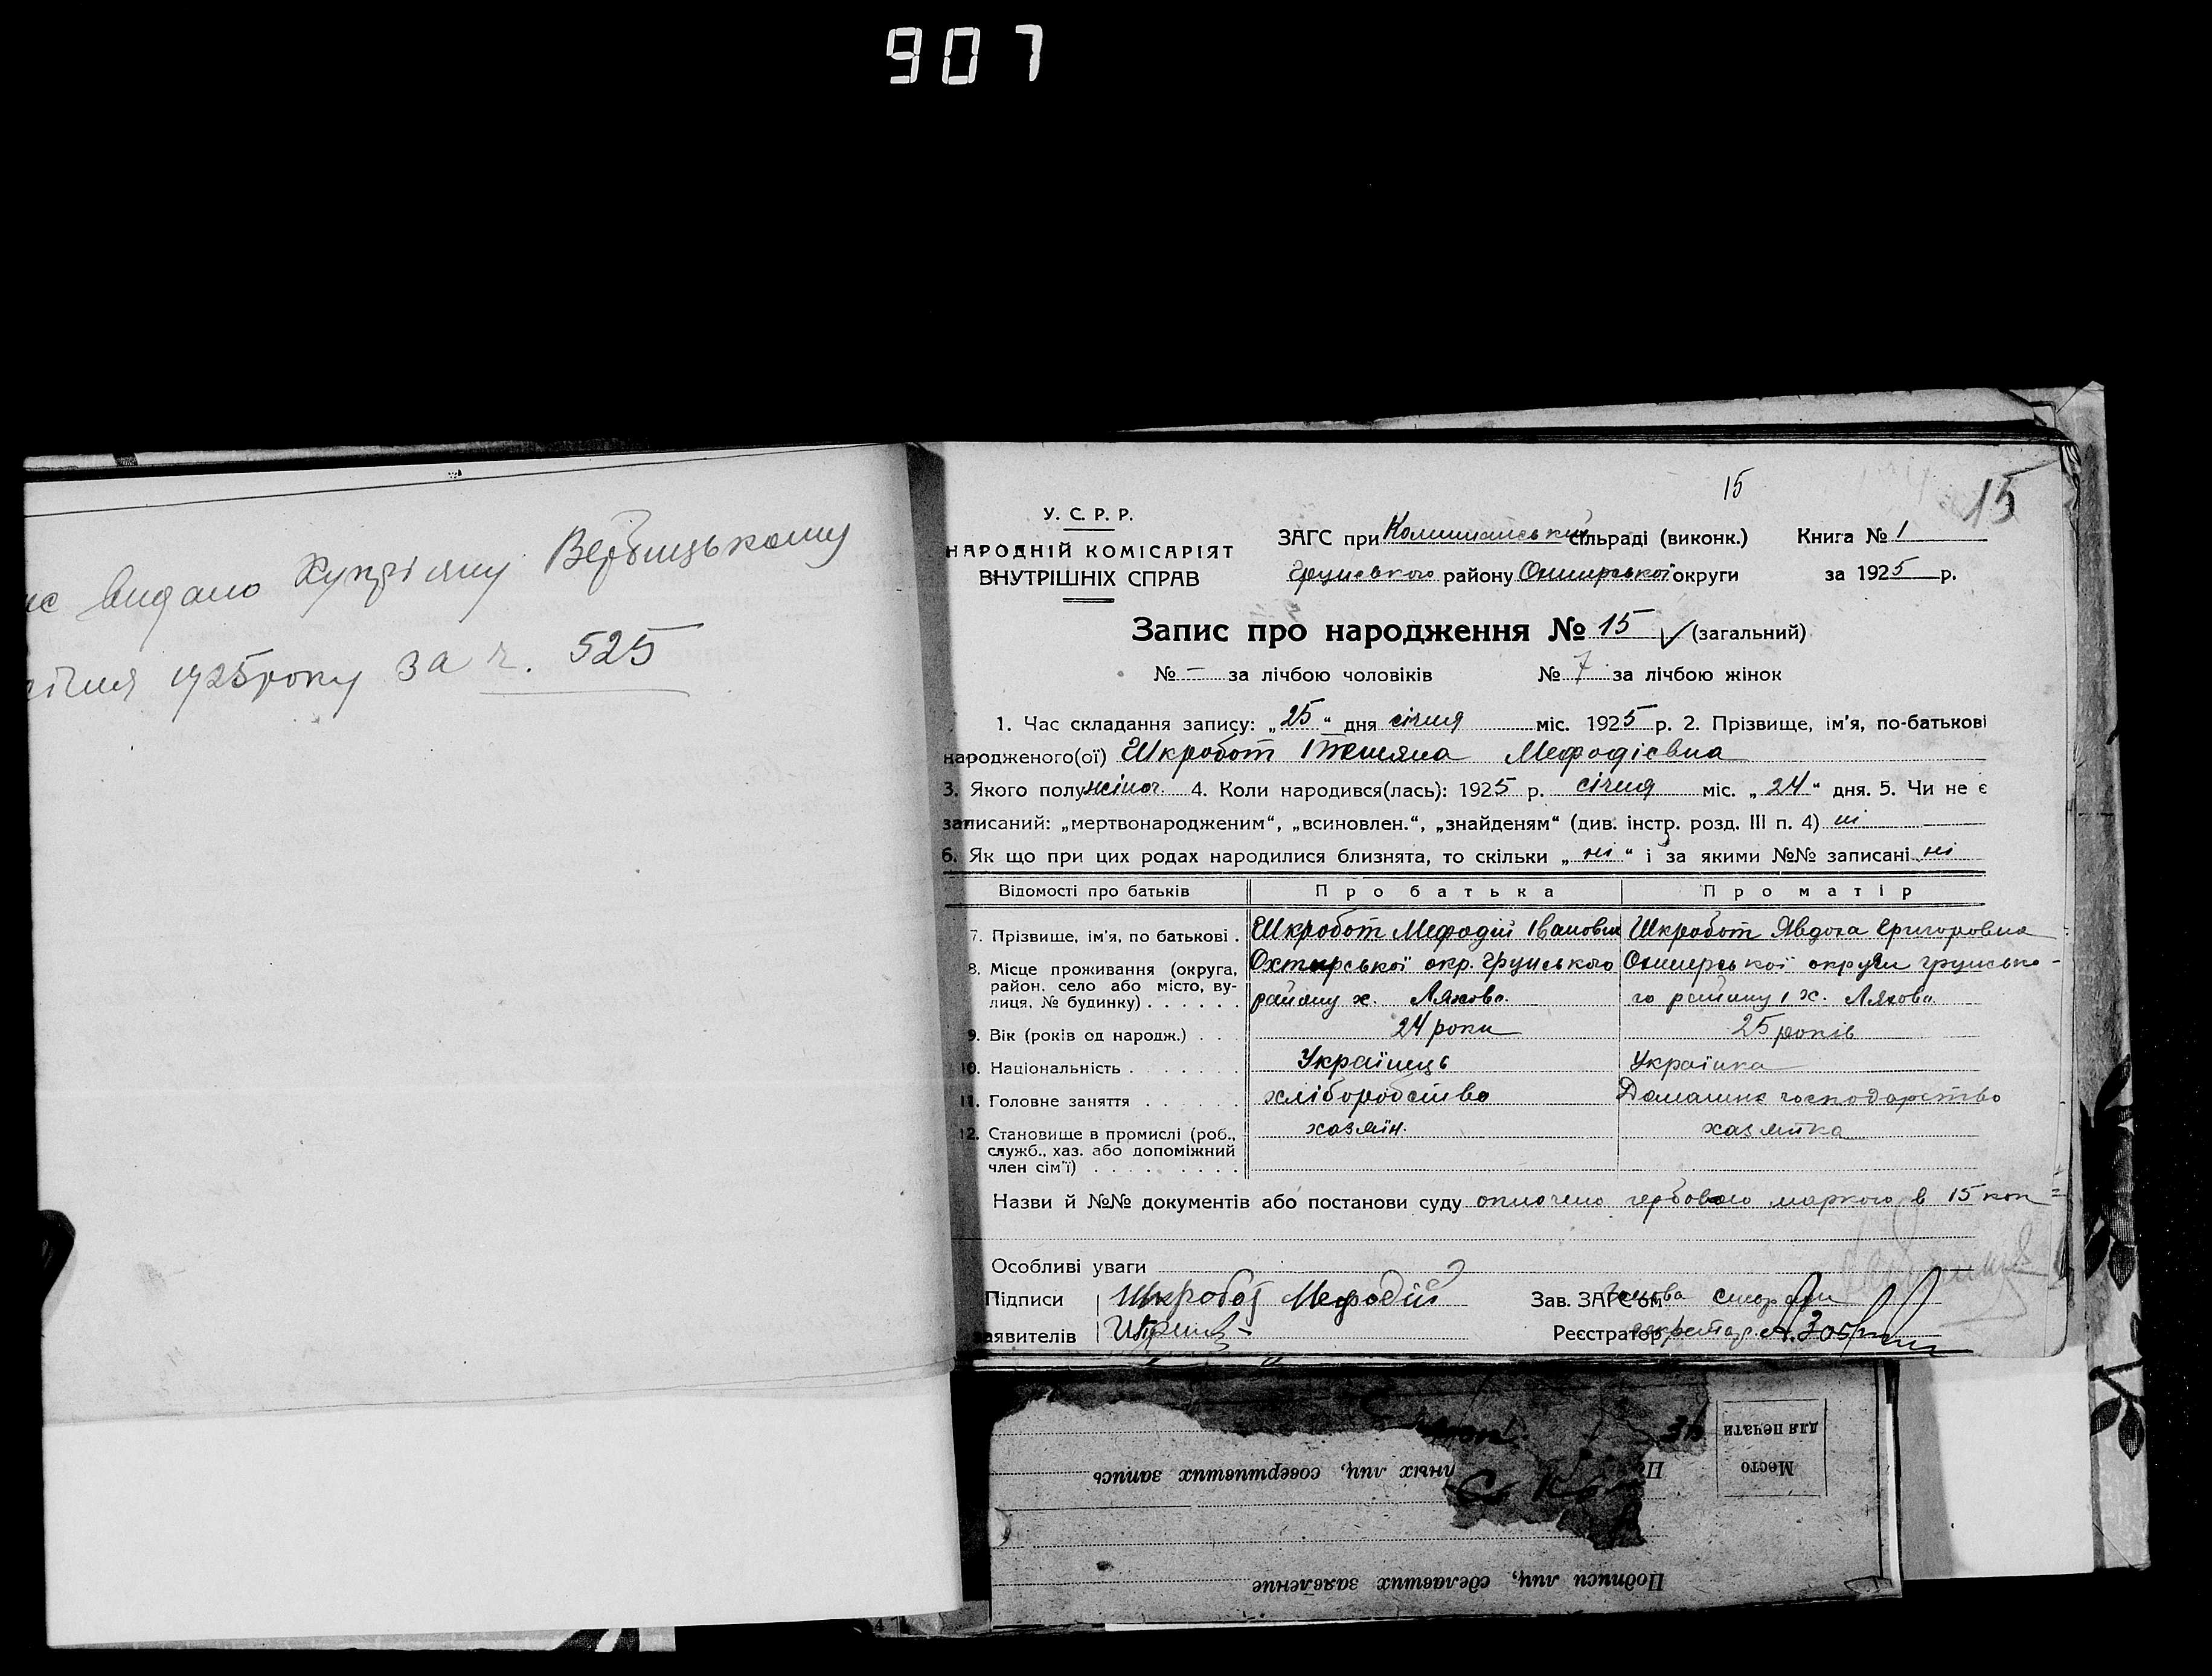 907
видано Купріяну Вербицькому
січня 1925 року за ч. 525
15
15
У. С. Р. Р.
НАРОДНІЙ КОМІСАРІЯТ
ВНУТРІШНІХ СПРАВ
ЗАГС при Комишанській сільраді (виконк.)
Грунського району Охтирської округи
Книга № 1
за 1925 р.
Запис про народження № 15 (загальний)
№ — за лічбою чоловіків № 7 за лічбою жінок
1. Час складання запису: „25“ дня січня міс. 1925 р. 2. Прізвище, ім'я, по-батькові
народженого(ої) Шкробот Тетяна Мефодієвна
3. Якого полу жіноч. 4. Коли народився(лась): 1925 р. січня міс. „24“ дня. 5. Чи не є
записаний: „мертвонародженим“, „всиновлен.“, „знайденям“ (див. інстр. розд. III п. 4) ні
6. Як що при цих родах народилися близнята, то скільки „ні“ і за якими №№ записані ні
Відомості про батьків П р о б а т ь к а П р о м а т і р
7. Прізвище, ім'я, по батькові . Шкробот Мефодій Іванович Шкробот Явдоха Григоровна
8. Місце проживання (округа, Охтирської окр. Грунського Охтирської округи Грунсько-
район, село або місто, ву-
лиця, № будинку) . . . . . . району х. Ляхова. го району, х. Ляхова
9. Вік (років од народж.) . . . 24 роки 25 років
10. Національність . . . . . . . Українець Українка
11. Головне заняття . . . . . . хліборобство Домашнє господарство
12. Становище в промислі (роб., хазяїн. хазяйка
служб., хаз. або допоміжний
член сім'ї) . . . . . . . . .
Назви й №№ документів або постанови суду оплочено гербовою маркою в 15 коп
Особливі уваги
Підписи Шкробот Мефодій Зав. ЗАГС'ом Голова
заявителів Реєстратор секретар
Место
для печати
лиц, совершивших запись
Подписи лиц, сделавших заявление